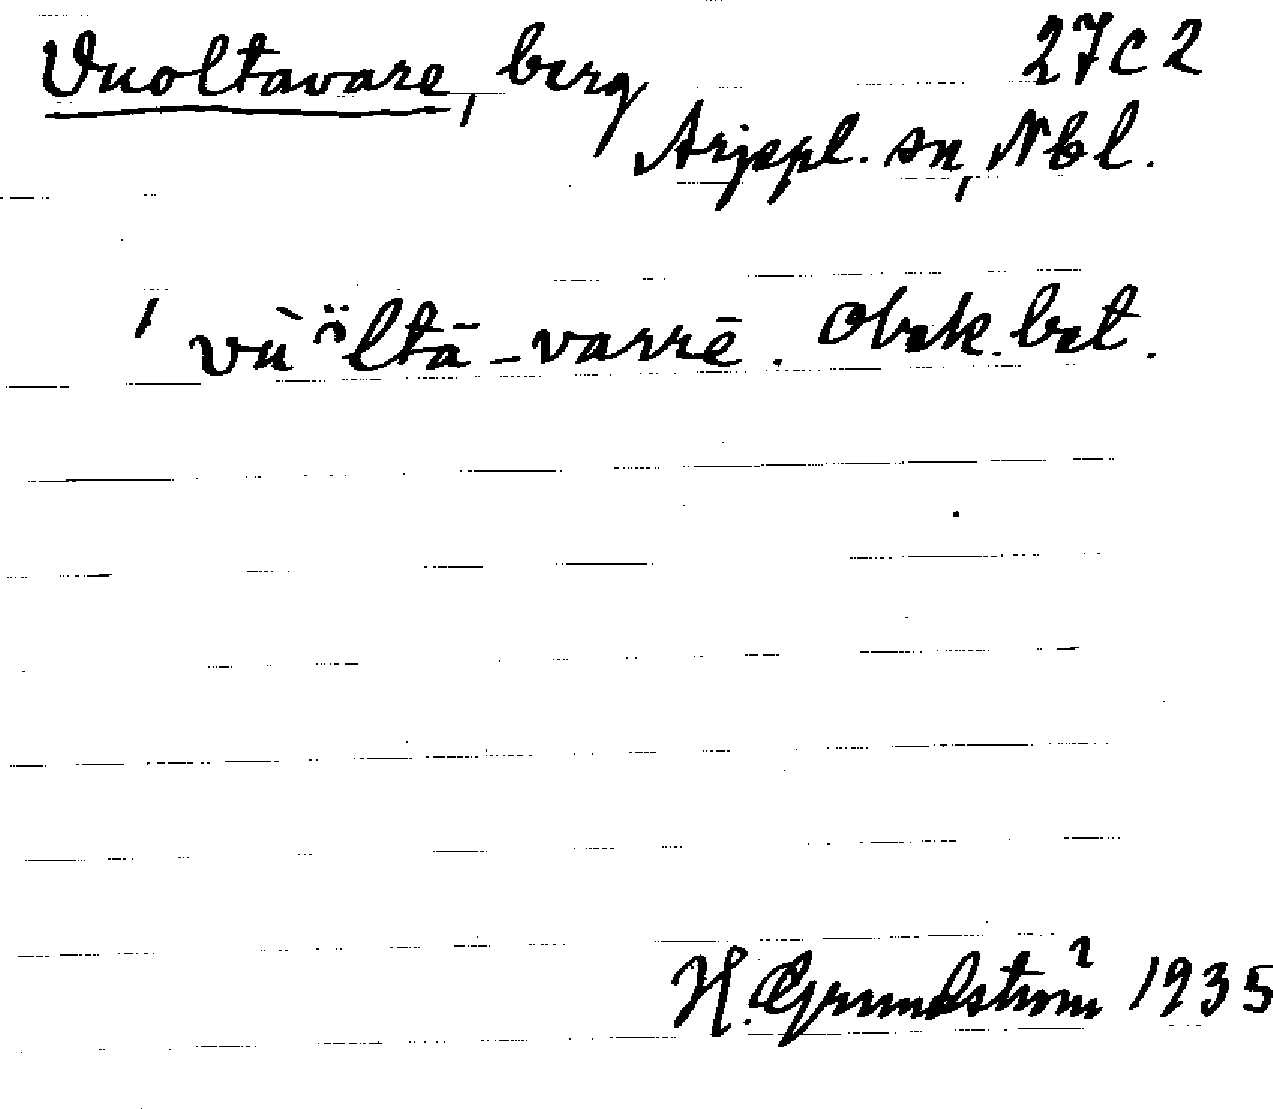 Vuoltavare, berg 27C2
Arjepl. sn, Nbl.
ˈvù ͧ̈ltā-varrē. Obek. bet.
H. Grundström 1935